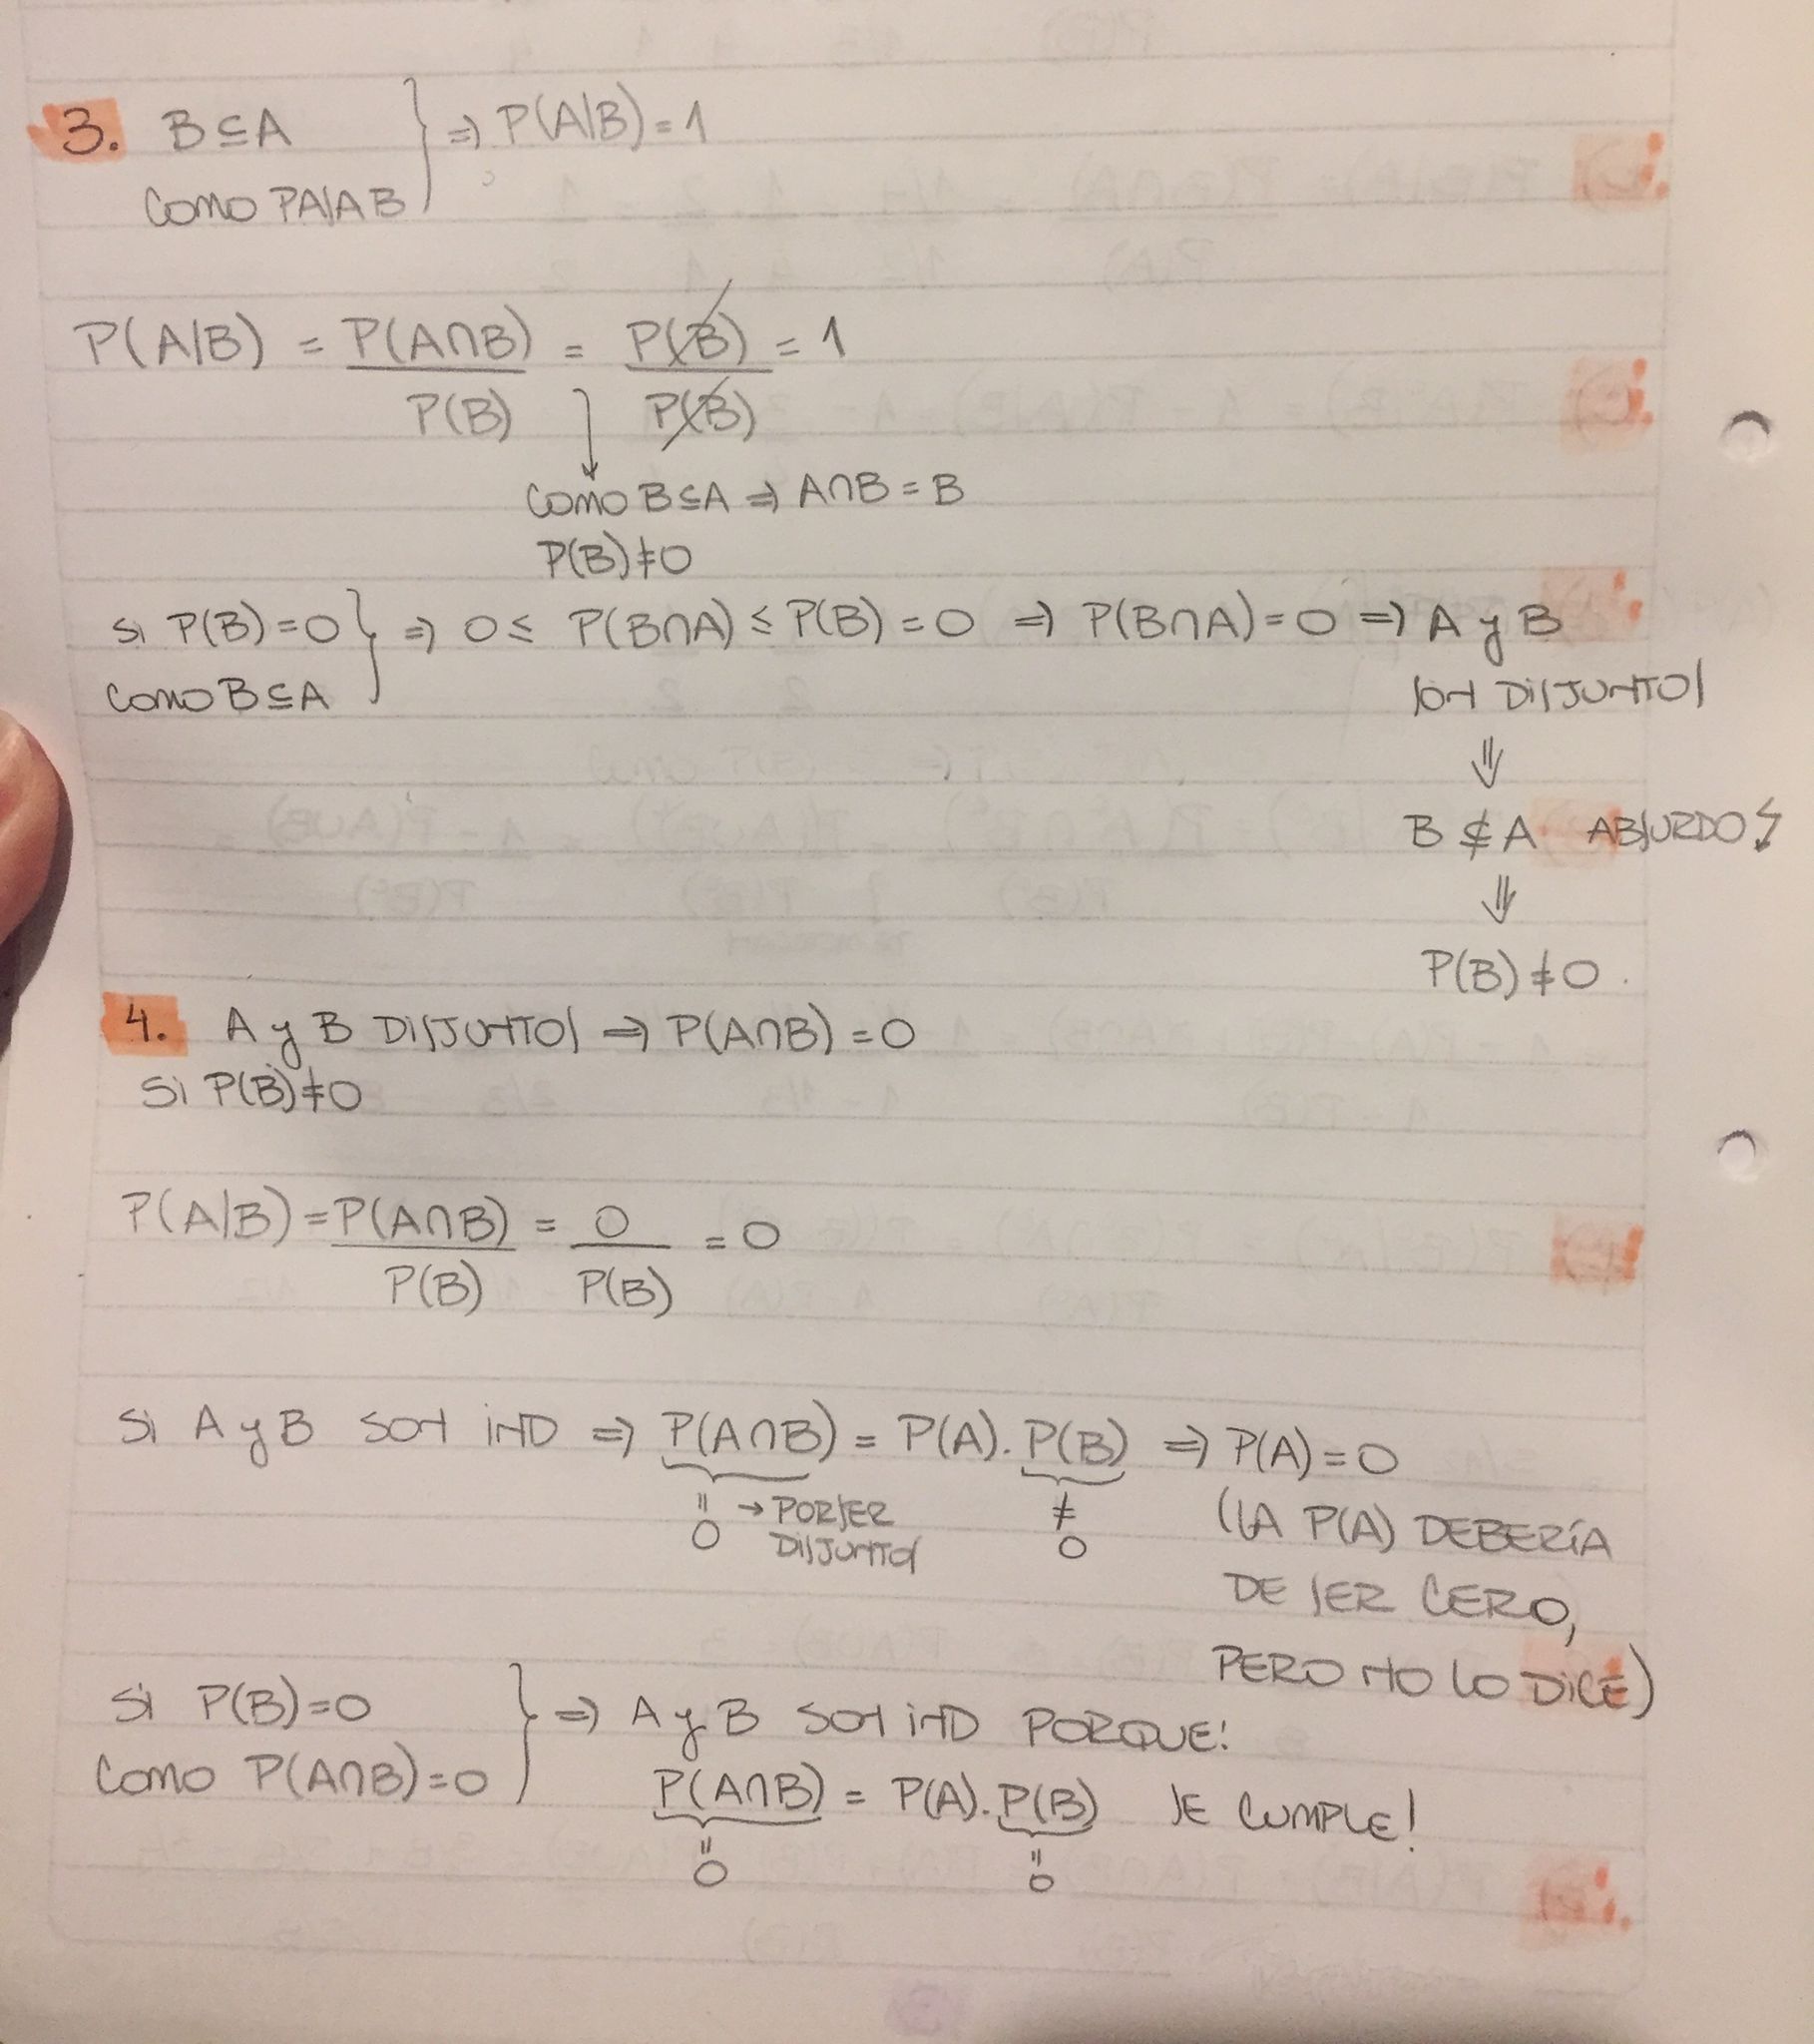 3. B⊆A } ⇒ P(A|B) = 1
Como PASA B
P(A|B) = P(A∩B) / P(B) = P(B) / P(B) = 1
Como B⊆A ⇒ A∩B = B
P(B)≠0
si P(B)=0 } ⇒ 0 ≤ P(B∩A) ≤ P(B) = 0 ⇒ P(B∩A) = 0 ⇒ A y B
Como B⊆A
SON DISJUNTOS
⇓
B ⊄ A ABSURDO ↯
⇓
P(B)≠0.
4. A y B DISJUNTOS ⇒ P(A∩B) = 0
Si P(B)≠0
P(A|B) = P(A∩B) / P(B) = 0 / P(B) = 0
Si A y B SON IND ⇒ P(A∩B) = P(A). P(B) ⇒ P(A) = 0
= 0 → POR SER DISJUNTOS
≠ 0
(LA P(A) DEBERÍA
DE SER CERO,
PERO NO LO DICE)
Si P(B)=0 } ⇒ A y B SON IND PORQUE:
Como P(A∩B)=0
P(A∩B) = P(A). P(B) SE CUMPLE!
= 0
= 0